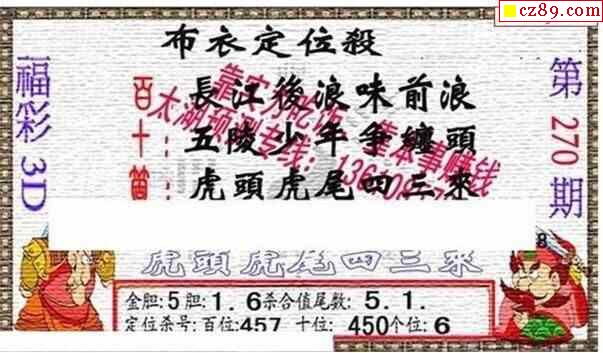 cz89.com
布衣定位殺
福彩3D
第270期
百：長江後浪味前浪
十：五陵少年争纏頭
個：虎頭虎尾四三來
靠实力吃饭 靠本事赚钱
太湖预测专线：
虎頭虎尾四三來
金胆:5胆:1.6杀合值尾数:5.1.
定位杀号:百位:457 十位:450个位:6
8